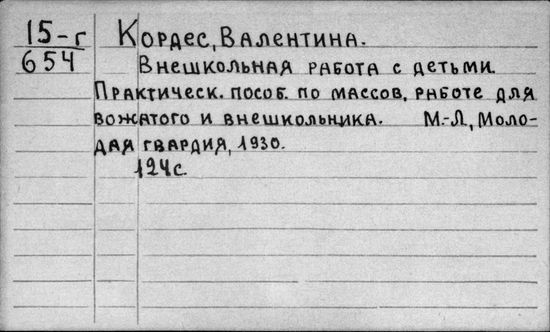 15-г
654
Кордес, Валентина.
Внешкольная работа с детьми.
Практическ. пособ. по массов. работе для
вожатого и внешкольника. М.-Л., Моло-
дая гвардия, 1930.
124с.